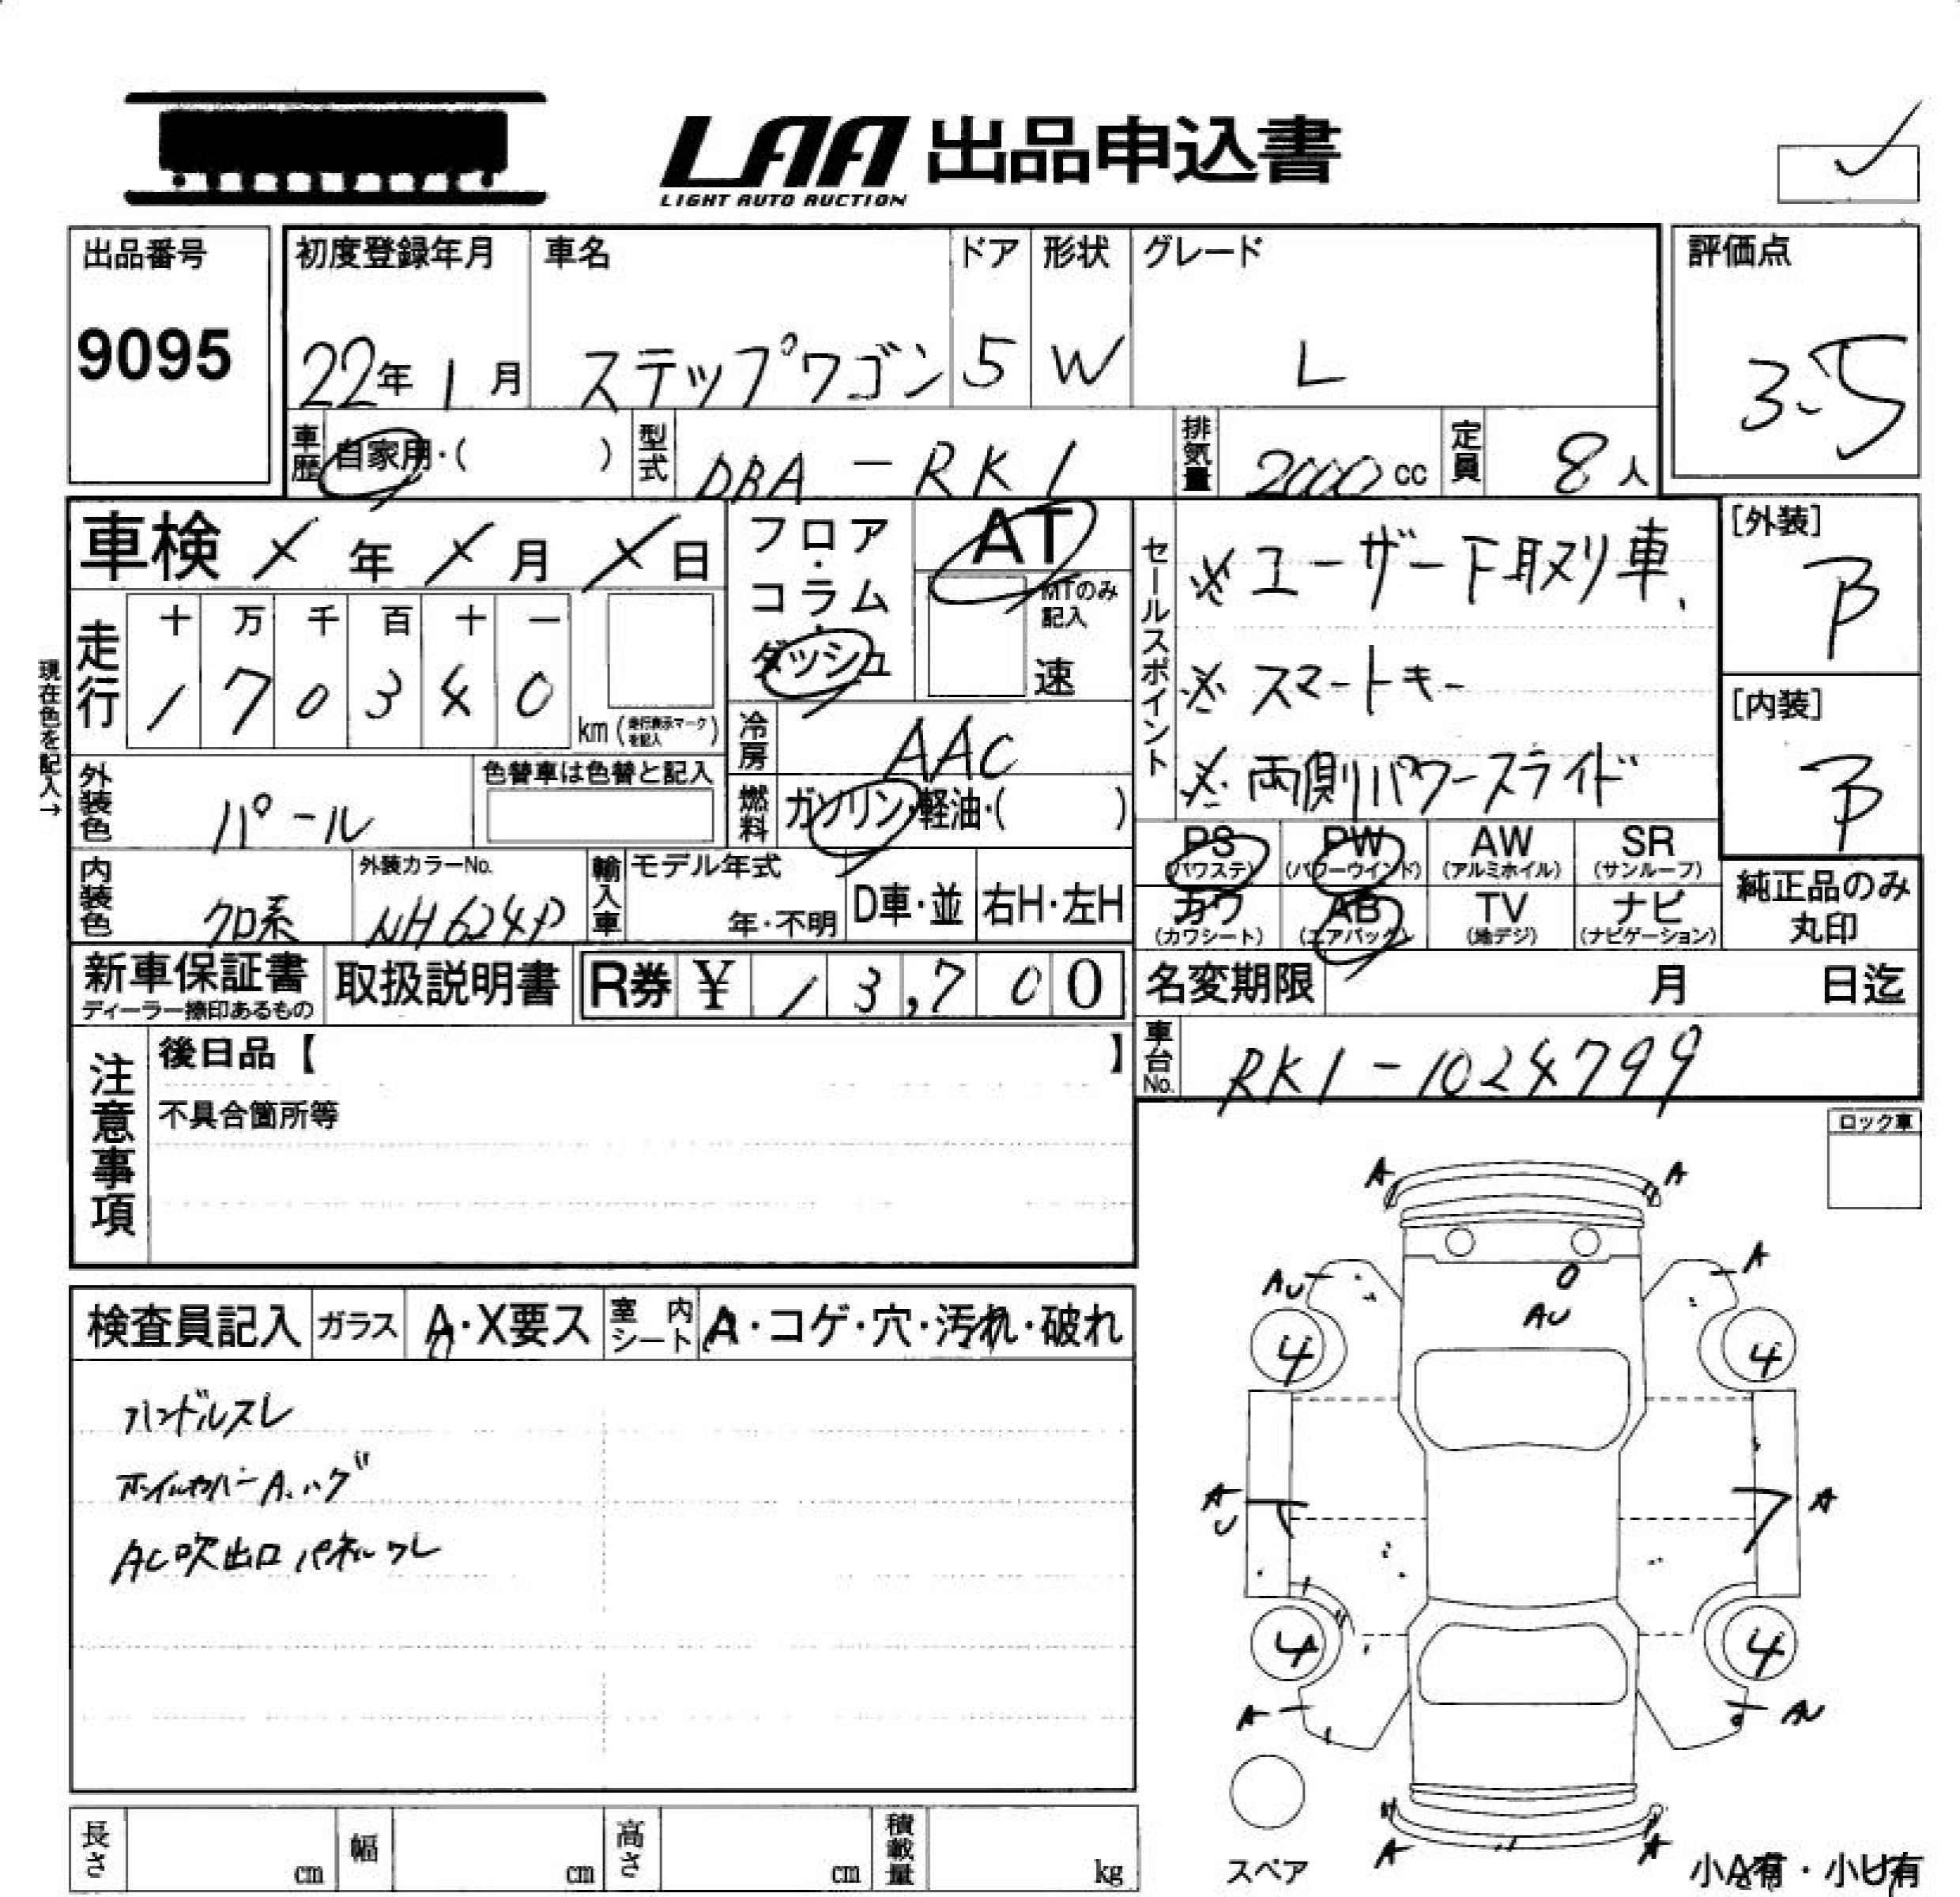 LAA 出品申込書
LIGHT AUTO AUCTION
出品番号
9095
初度登録年月
22年 1月
車名
ステップワゴン
ドア
5
形状
W
グレード
L
評価点
3.5
車歴 自家用・( )
型式 DBA-RK1
排気量 2000 cc
定員 8人
車検 × 年 × 月 × 日
フロア・コラム・ダッシュ
AT
MTのみ記入
速
走行
十 万 千 百 十 一
1 7 0 3 4 0
km (走行表示マークを記入)
現在色を記入→
冷房 AAC
外装色 パール
色替車は色替と記入
燃料 ガソリン・軽油・( )
内装色 クロ系
外装カラーNo.
NH624P
輸入車
モデル年式
年・不明
D車・並
右H・左H
セールスポイント
※ユーザー下取り車、
※スマートキー
※両側パワースライド
[外装]
B
[内装]
B
PS (パワステ)
PW (パワーウインド)
AW (アルミホイル)
SR (サンルーフ)
カワ (カワシート)
AB (エアバッグ)
TV (地デジ)
ナビ (ナビゲーション)
純正品のみ丸印
新車保証書
ディーラー捺印あるもの
取扱説明書
R券 ¥ 13,700
名変期限 月 日迄
車台No. RK1-1024799
注意事項
後日品【 】
不具合箇所等
ロック車
検査員記入
ガラス A・X要ス
室内シート A・コゲ・穴・汚れ・破れ
ハンドルスレ
ホイルカバーA.ハグ
AC吹出口パネルワレ
A A
AU A
0
AU
4 4
A
U
7 A
4 4
A AU
A A
スペア
小A有・小U有
長さ cm
幅 cm
高さ cm
積載量 kg